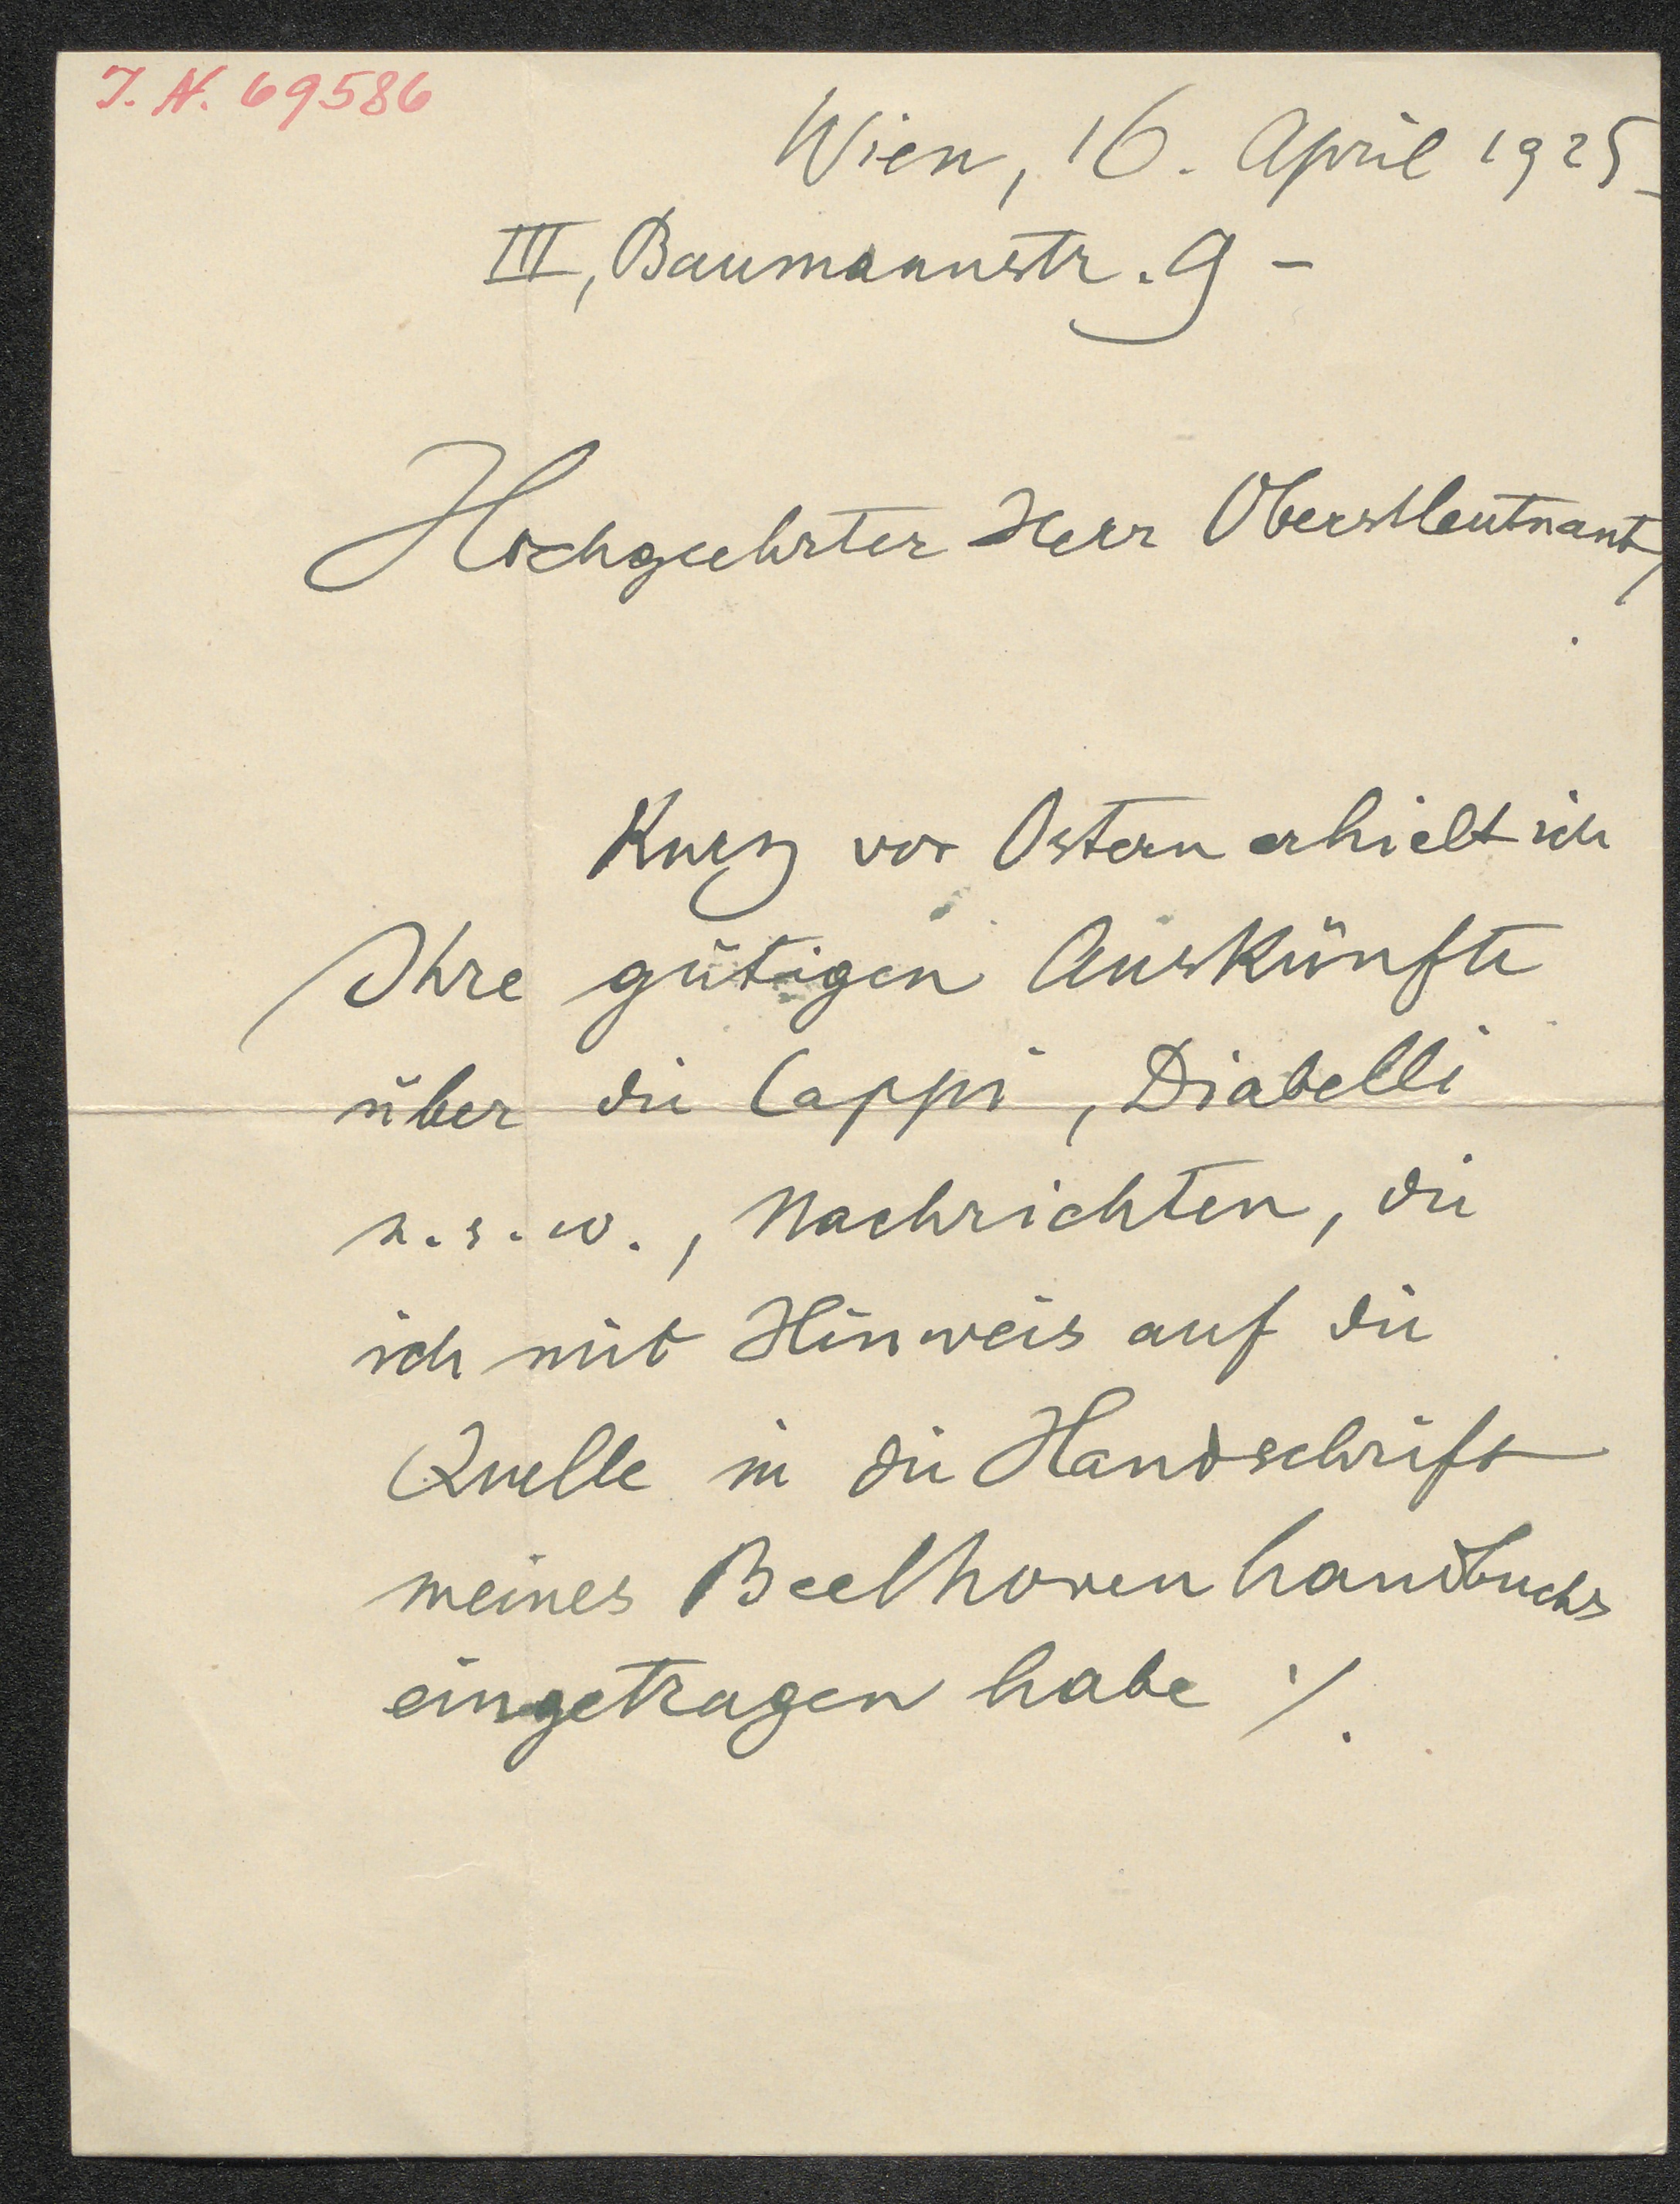 I. N. 69586
Wien, 16. April 1925
III, Baumannstr. 9 –
Hochgeehrter Herr Oberstleutnant,
Kurz vor Ostern erhielt ich
Ihre gütigen Auskünfte
über die Cappi, Diabelli
u. s. w., Nachrichten, die
ich mit Hinweis auf die
Quelle in die Handschrift
meines Beethovenhandbuchs
eingetragen habe ./.